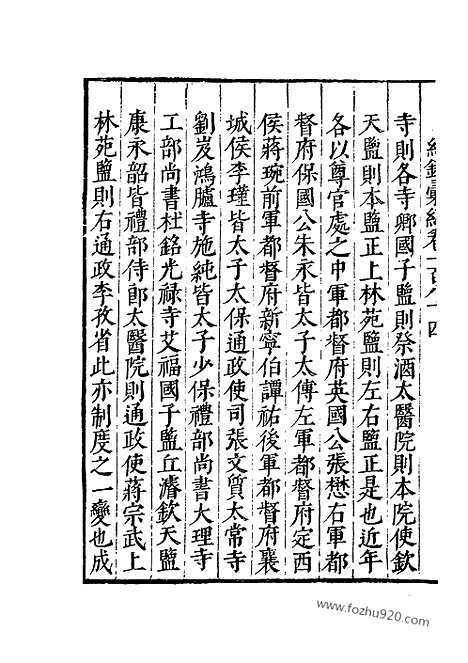 紀錄彙編卷一百八十四
寺則各寺卿國子監則祭酒太醫院則本院使欽
天監則本監正上林苑監則左右監正是也近年
各以尊官處之中軍都督府英國公張懋右軍都
督府保國公朱永皆太子太傅左軍都督府定西
侯蔣琬前軍都督府新寧伯譚祐後軍都督府襄
城侯李瑾皆太子太保通政使司張文質太常寺
劉岌鴻臚寺施純皆太子少保禮部尚書大理寺
工部尚書杜銘光祿寺艾福國子監丘濬欽天監
康永韶皆禮部侍郎太醫院則通政使蔣宗武上
林苑監則右通政李孜省此亦制度之一變也成
www.fozhu920.com